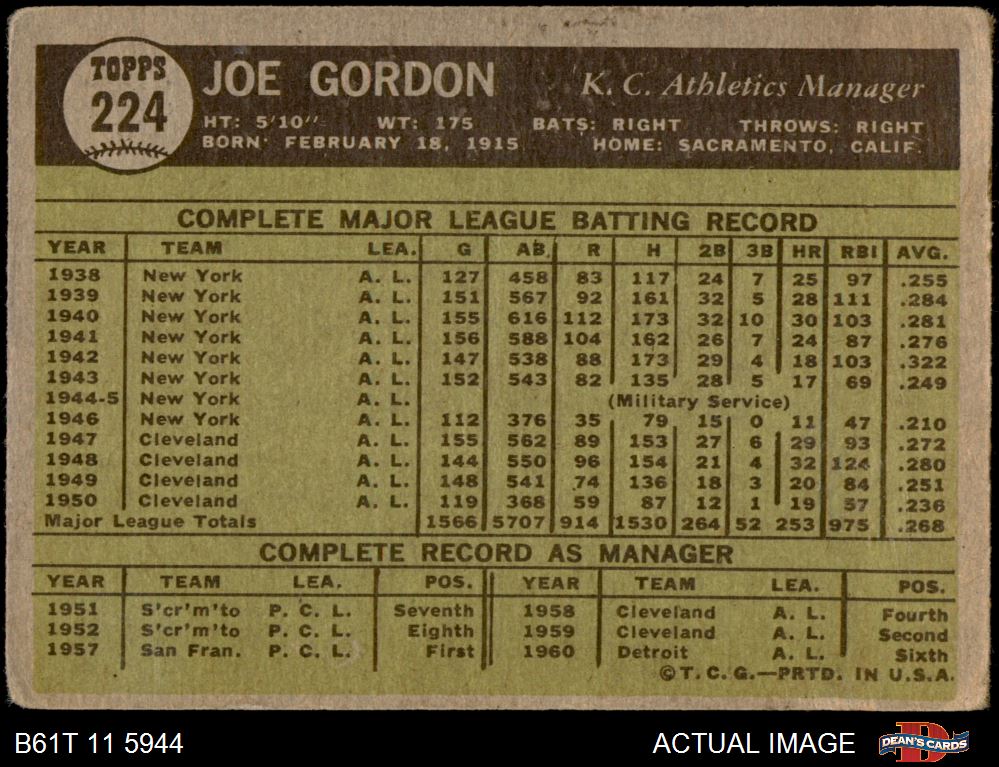 TOPPS
224
JOE GORDON K. C. Athletics Manager
HT: 5'10" WT: 175 BATS: RIGHT THROWS: RIGHT
BORN: FEBRUARY 18, 1915 HOME: SACRAMENTO, CALIF.
COMPLETE MAJOR LEAGUE BATTING RECORD
YEAR TEAM LEA. G AB. R H 2B 3B HR RBI AVG.
1938 New York A. L. 127 458 83 117 24 7 25 97 .255
1939 New York A. L. 151 567 92 161 32 5 28 111 .284
1940 New York A. L. 155 616 112 173 32 10 30 103 .281
1941 New York A. L. 156 588 104 162 26 7 24 87 .276
1942 New York A. L. 147 538 88 173 29 4 18 103 .322
1943 New York A. L. 152 543 82 135 28 5 17 69 .249
1944-5 New York A. L. (Military Service)
1946 New York A. L. 112 376 35 79 15 0 11 47 .210
1947 Cleveland A. L. 155 562 89 153 27 6 29 93 .272
1948 Cleveland A. L. 144 550 96 154 21 4 32 124 .280
1949 Cleveland A. L. 148 541 74 136 18 3 20 84 .251
1950 Cleveland A. L. 119 368 59 87 12 1 19 57 .236
Major League Totals 1566 5707 914 1530 264 52 253 975 .268
COMPLETE RECORD AS MANAGER
YEAR TEAM LEA. POS. YEAR TEAM LEA. POS.
1951 S'cr'm'to P. C. L. Seventh 1958 Cleveland A. L. Fourth
1952 S'cr'm'to P. C. L. Eighth 1959 Cleveland A. L. Second
1957 San Fran. P. C. L. First 1960 Detroit A. L. Sixth
©T. C. G.—PRTD. IN U.S.A.
B61T 11 5944 ACTUAL IMAGE DEAN'S CARDS